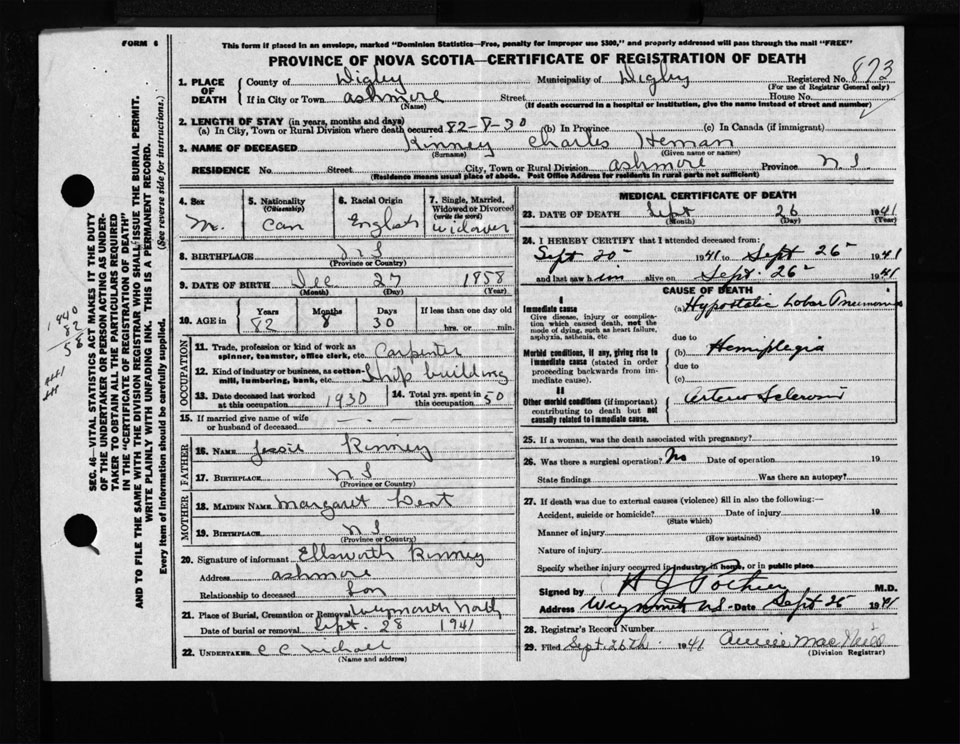 FORM 6
This form if placed in an envelope, marked "Dominion Statistics—Free, penalty for improper use $300," and properly addressed will pass through the mail "FREE"
PROVINCE OF NOVA SCOTIA—CERTIFICATE OF REGISTRATION OF DEATH
1. PLACE OF DEATH County of Digby Municipality of Digby Registered No. 873
(For use of Registrar General only)
If in City or Town Ashmore Street House No.
(Name) (If death occurred in a hospital or institution, give the name instead of street and number)
2. LENGTH OF STAY (in years, months and days)
(a) In City, Town or Rural Division where death occurred 82-8-30 (b) In Province (c) In Canada (if immigrant)
3. NAME OF DECEASED Kinney Charles Heman
(Surname) (Given name or names)
RESIDENCE No. Street City, Town or Rural Division Ashmore Province N S
(Residence means usual place of abode. Post Office Address for residents in rural parts not sufficient)
4. Sex M. 5. Nationality (Citizenship) Can 6. Racial Origin English 7. Single, Married, Widowed or Divorced (write the word) widower
8. BIRTHPLACE N S
(Province or Country)
9. DATE OF BIRTH Dec 27 1958
(Month) (Day) (Year)
10. AGE in Years Months Days If less than one day old
82 8 30 hrs. or min.
OCCUPATION
11. Trade, profession or kind of work as spinner, teamster, office clerk, etc. Carpenter
12. Kind of industry or business, as cotton-mill, lumbering, bank, etc. Ship building
13. Date deceased last worked at this occupation 1930 14. Total yrs. spent in this occupation 50
15. If married give name of wife or husband of deceased
FATHER
16. NAME Jessie Kinney
17. BIRTHPLACE N S
(Province or Country)
MOTHER
18. MAIDEN NAME Margaret Dent
19. BIRTHPLACE N S
(Province or Country)
20. Signature of informant Ellsworth Kinney
Address Ashmore
Relationship to deceased Son
21. Place of Burial, Cremation or Removal Weymouth North
Date of burial or removal Sept. 28 1941
22. UNDERTAKER C C
(Name and address)
MEDICAL CERTIFICATE OF DEATH
23. DATE OF DEATH Sept 26 1941
(Month) (Day) (Year)
24. I HEREBY CERTIFY that I attended deceased from:
Sept 20 1941 to Sept 26 1941
and last saw him alive on Sept. 26 1941
CAUSE OF DEATH
I
Immediate cause
Give disease, injury or complication which caused death, not the mode of dying, such as heart failure, asphyxia, asthenia, etc
(a) Hypostatic Lobar Pneumonia
due to
Morbid conditions, if any, giving rise to immediate cause (stated in order proceeding backwards from immediate cause).
(b) Hemiplegia
due to
(c)
II
Other morbid conditions (if important) contributing to death but not causally related to immediate cause.
Arterio Sclerosis
25. If a woman, was the death associated with pregnancy?
26. Was there a surgical operation? No Date of operation 19
State findings Was there an autopsy?
27. If death was due to external causes (violence) fill in also the following:—
Accident, suicide or homicide? Date of injury 19
(State which)
Manner of injury
(How sustained)
Nature of injury
Specify whether injury occurred in industry in home, or in public place
Signed by Pothier M.D.
Address Weymouth N.S. Date Sept 26 1941
28. Registrar's Record Number
29. Filed Sept 26th 1941 Annie Mac
(Division Registrar)
SEC. 46—VITAL STATISTICS ACT MAKES IT THE DUTY
OF THE UNDERTAKER OR PERSON ACTING AS UNDER-
TAKER TO OBTAIN ALL THE PARTICULARS REQUIRED
IN THE "CERTIFICATE OF REGISTRATION OF DEATH"
AND TO FILE THE SAME WITH THE DIVISION REGISTRAR WHO SHALL ISSUE THE BURIAL PERMIT.
WRITE PLAINLY WITH UNFADING INK. THIS IS A PERMANENT RECORD.
Every item of information should be carefully supplied. (See reverse side for instructions.)
1940
82